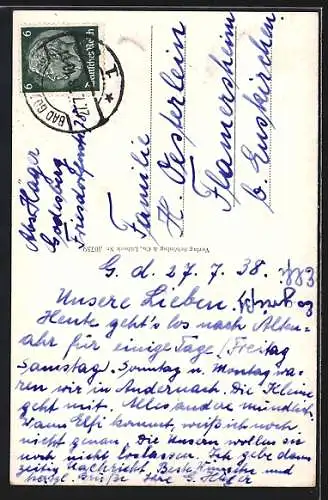 6
6
Deutsches Reich
BAD GO
27.7.
1
*
Abs. Häger
Godesberg
Friesdorferstr.
Familie
H. Oesterlein
Flamersheim
b. Euskirchen
Verlag Schöning & Co., Lübeck Nr.
G. d. 27. 7. 38.
Unsere Lieben.
Heute geht's los nach Alten-
ahr für einige Tage (Freitag
Samstag). Sonntag u. Montag wa-
ren wir in Andernach. Die Kleine
geht mit. Alles andere mündlich.
Wann Elfi kommt, weiß ich noch
nicht genau, Die Unseren wollen sie
noch nicht loslassen. Ich gebe dann
zeitig Nachricht. Beste Wünsche und
herzl. Grüße Ihre G. Häger